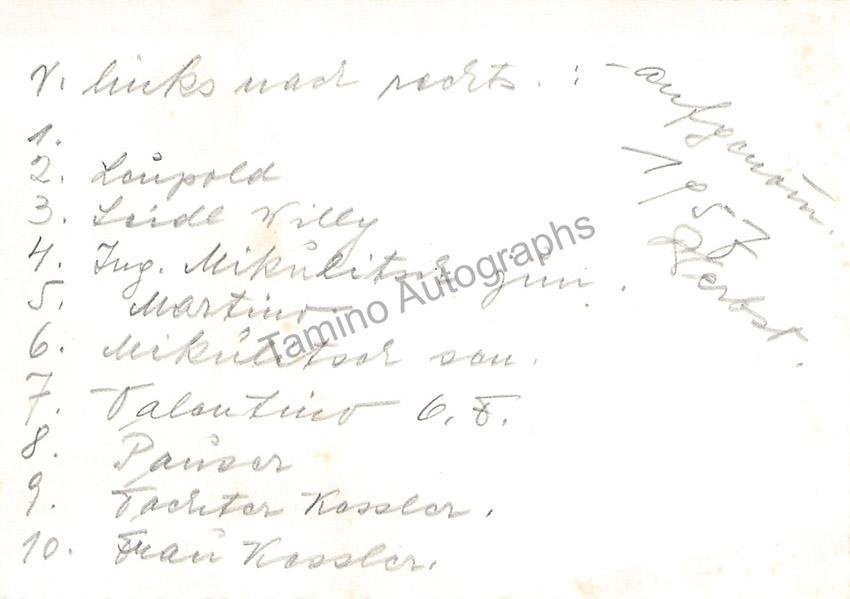 V. links nach rechts. :
1.
2. Leupold
3. Seidl Willy
4. Ing. Mikulitsch jun.
5. Martino
6. Mikulitsch sen.
7. Valentino
8. Pauser
9. Tochter Kessler.
10. Frau Kessler.
aufgenom.
1957
Herbst.
Tamino Autographs